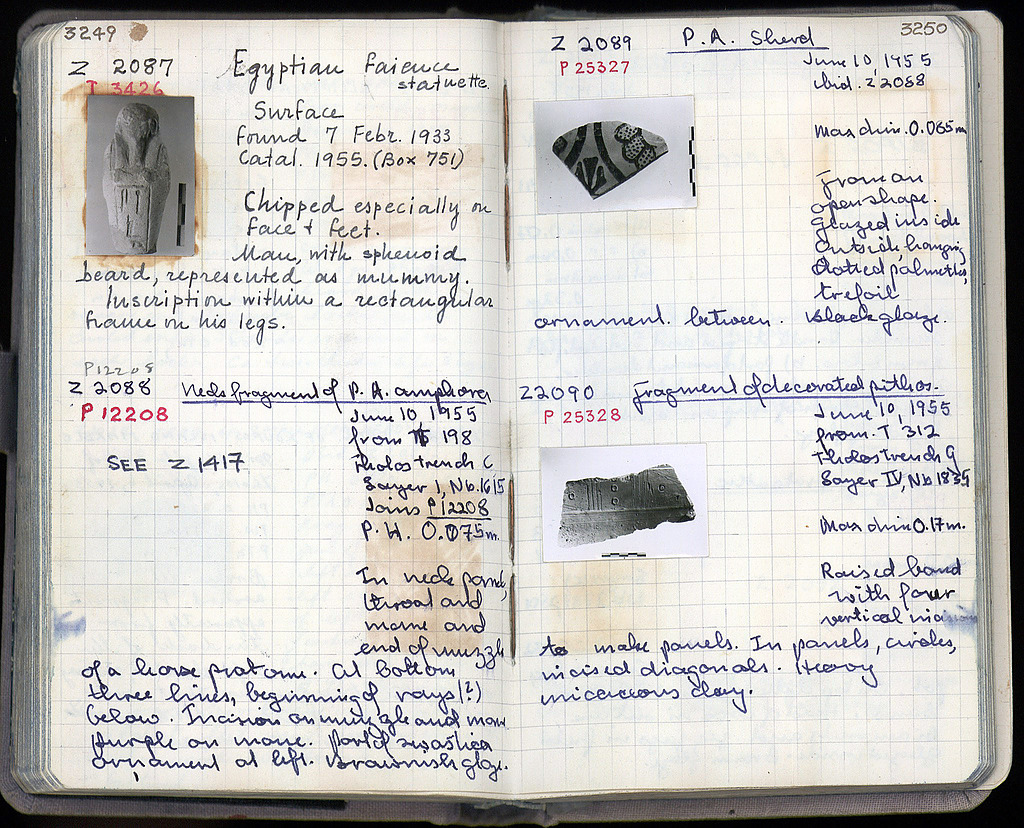 3249
Z 2087
T 3426
Egyptian faience
statuette.
Surface
found 7 Febr. 1933
Catal. 1955. (Box 751)
Chipped especially on
face + feet.
Man, with sphenoid
beard, represented as mummy.
Inscription within a rectangular
frame on his legs.
P12208
Z 2088
Neck fragment of P. A. amphora
P 12208
June 10, 1955
from 198
SEE Z 1417
Tholos trench C
Layer I, Nb. 1615
Joins P 12208
P. H. 0.075m.
In neck panel,
throat and
mane and
end of muzzle
of a horse protome. At bottom
three lines, beginning of rays (?)
below. Incision on muzzle and mane
purple on mane. Part of swastica
ornament at left. Brownish glaze.
3250
Z 2089
P. A. Sherd
P 25327
June 10, 1955
ibid. Z 2088
Max dim. 0.065m
From an
open shape.
Glazed inside
Outside hanging
dotted palmettes,
trefoil
ornament between. Black glaze.
Z2090
Fragment of decorated pithos.
P 25328
June 10, 1955
from T 312
Tholos trench G
Layer IV, Nb 1835
Max dim 0.17m.
Raised band
with four
vertical incisions
to make panels. In panels, circles,
incised diagonals. Heavy
micaceous clay.